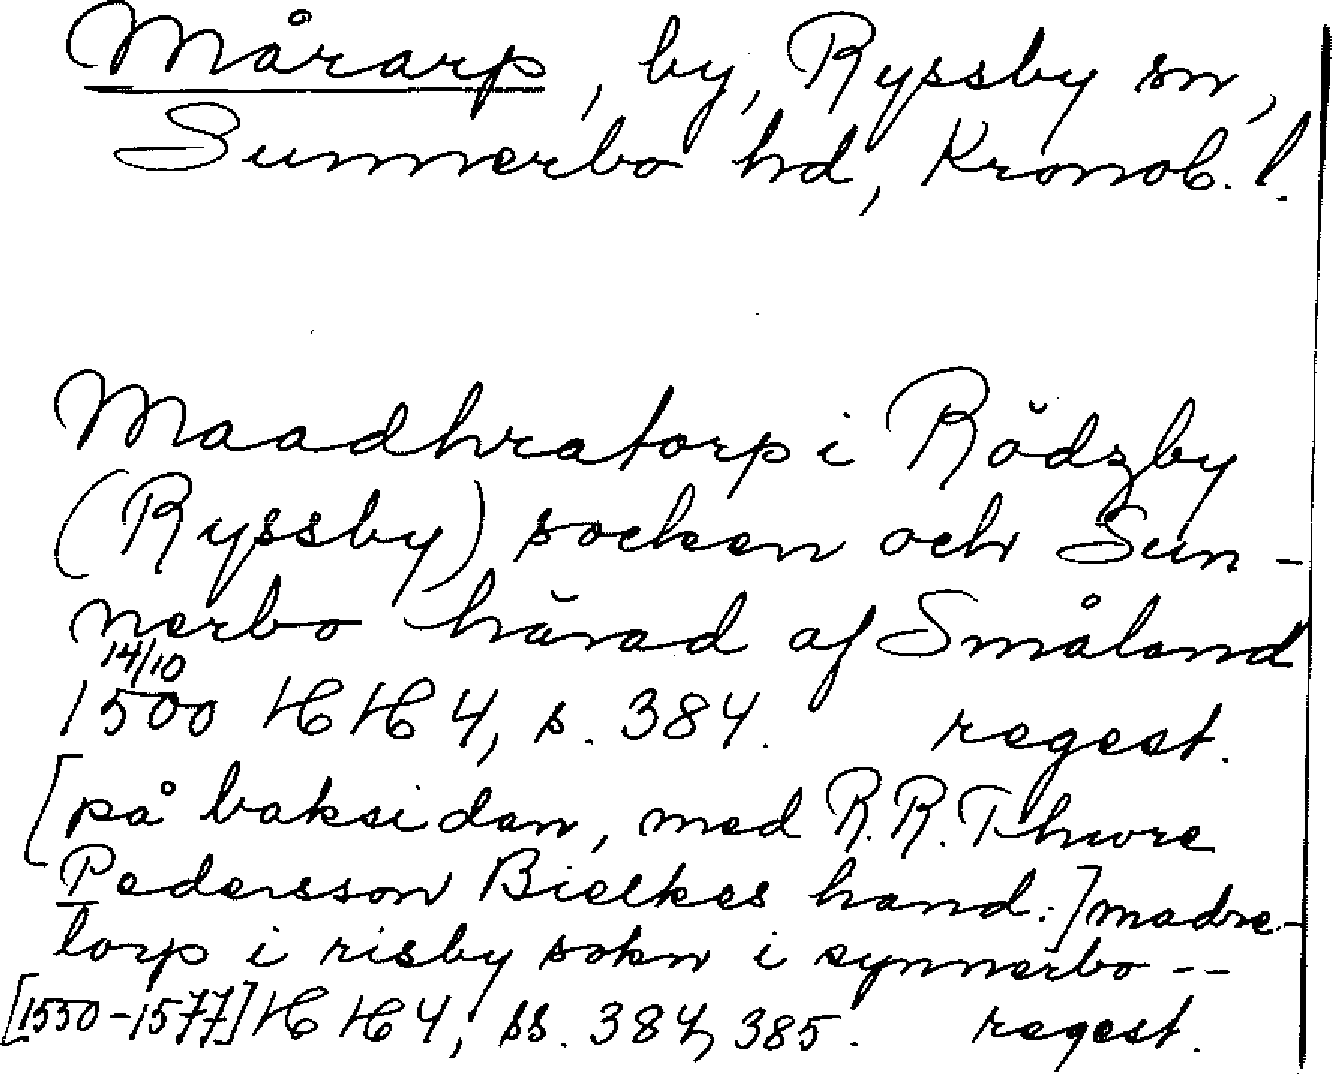 Mårarp, by, Ryssby sn,
Sunnerbo hd, Kronob. l.
Maadhratorp i Rödzby
(Ryssby) socken och Sun-
nerbo härad af Småland
14/10
1500 HH 4, s. 384. regest.
[på baksidan, med R.R. Thure
Pedersson Bielkes hand:] madre-
torp i risby sokn i synnerbo --
[1550-1577] HH 4, ss. 384, 385. regest.